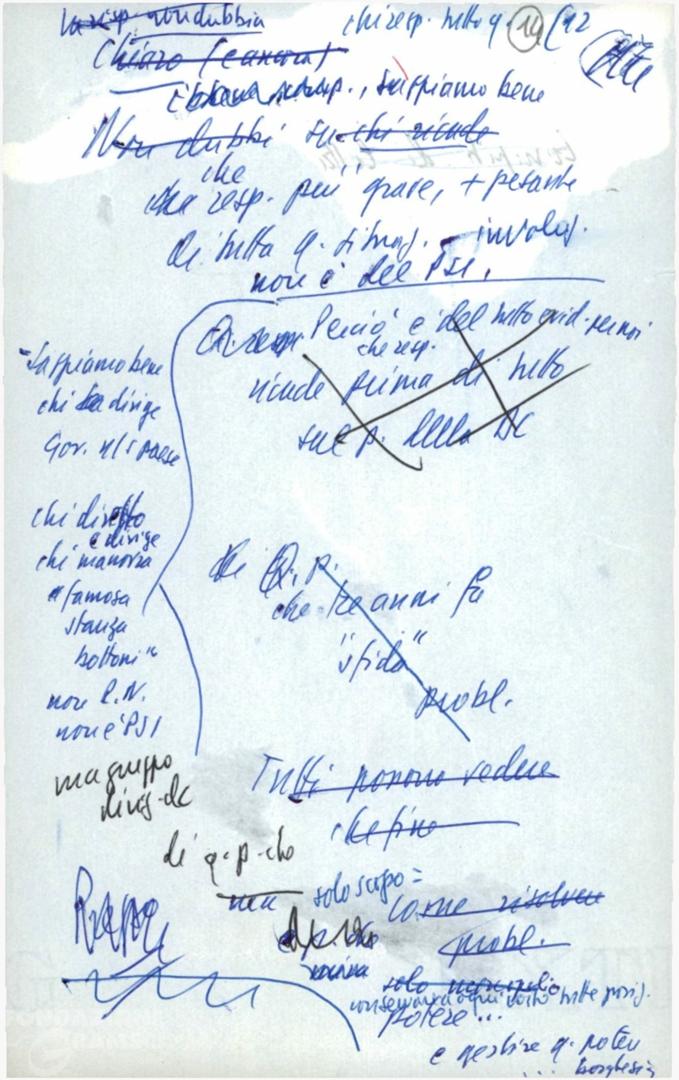 resp. non dubbia
chi resp. tutto q. 14 (12
Chiaro (ancora)
sappiamo bene
Non dubbi su chi ricade
che
resp. più grave, + pesante
di tutta q. situaz.
non è del PSI.
Perciò è del tutto evid.
che resp.
ricade prima di tutto
sul p. della DC
Sappiamo bene
chi dirige
Gov. nel Paese
chi diretto
e dirige
chi manovra
"famosa
stanza
bottoni"
non R.N.
non è PSI
ma gruppo
dirig. dc
di Q. p.
che tre anni fa
"sfida"
probl.
Tutti possono vedere
che fine
di q. p. che
ma
solo scopo =
come risolvere
probl.
solo
conservare ogni costo tutte posiz.
potere...
e gestire q. potere
... borghesia